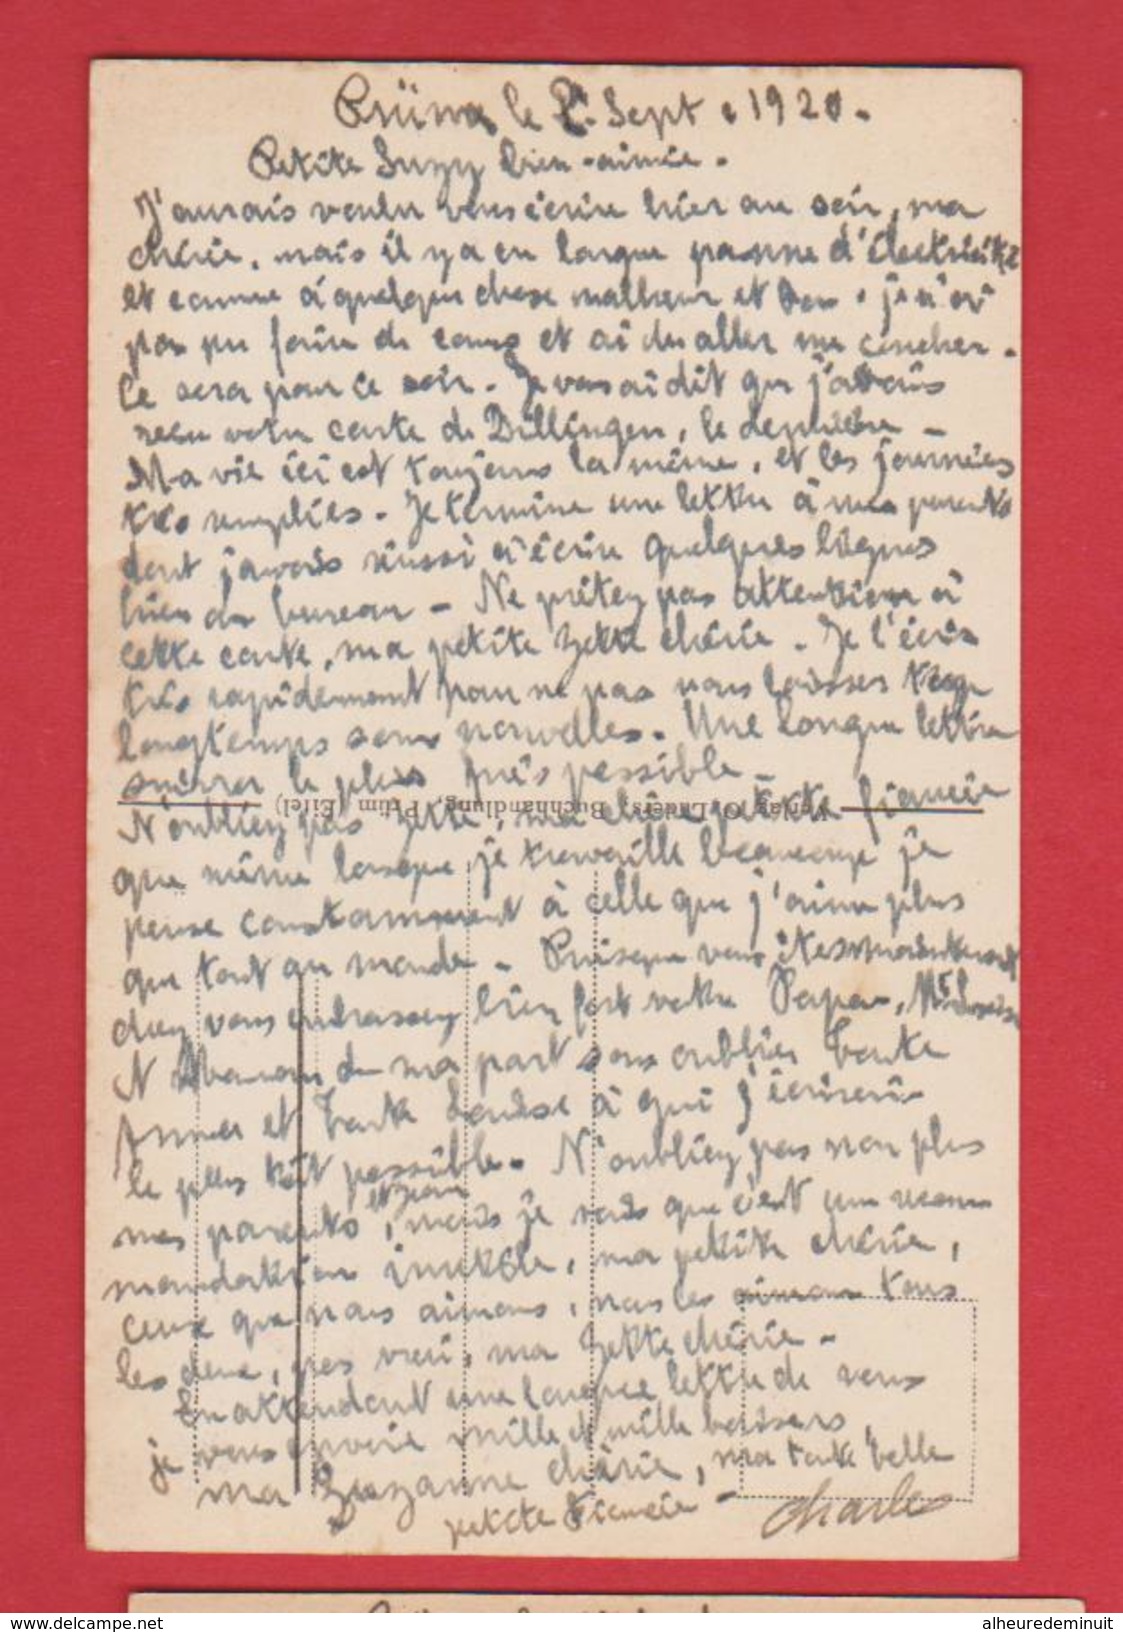 Prüm le 2 Sept 1920.
Petite Suzy bien-aimée.
J'aurais voulu vous écrire hier au soir, ma
chérie, mais il y a eu longue panne d'électricité
et comme à quelque chose malheur est bon, je n'ai
pas pu faire de cours et ai du aller me coucher.
Ce sera pour ce soir. Je vous ai dit que j'avais
reçu votre carte de Dillingen, la dernière.
Ma vie ici est toujours la même, et les journées
très remplies. Je termine une lettre à mes parents
dont j'avais réussi à écrire quelques lignes
hier du bureau. Ne prêtez pas attention à
cette carte, ma petite Zette chérie. Je l'écris
très rapidement pour ne pas vous laisser trop
longtemps sans nouvelles. Une longue lettre
suivra le plus près possible.
Verlag O. Lüders, Buchhandlung, Prüm (Eifel)
N'oubliez pas Zette, ma chère petite fiancée
que même lorsque je travaille beaucoup je
pense constamment à celle que j'aime plus
que tout au monde. Puisque vous êtes maintenant
chez vous embrassez bien fort votre Papa,
et Maman de ma part sans oublier Tante
Anna et Tante Louise à qui j'écrirai
le plus tôt possible. N'oubliez pas non plus
mes parents et Jean, mais je sais que c'est une recom
mandation inutile, ma petite chérie,
ceux que nous aimons, nous les aimons tous
les deux, pas vrai, ma Zette chérie.
En attendant une longue lettre de vous
je vous envoie mille et mille baisers,
ma Suzanne chérie, ma toute belle
petite fiancée.
Charles
www.delcampe.net
alheuredeminuit